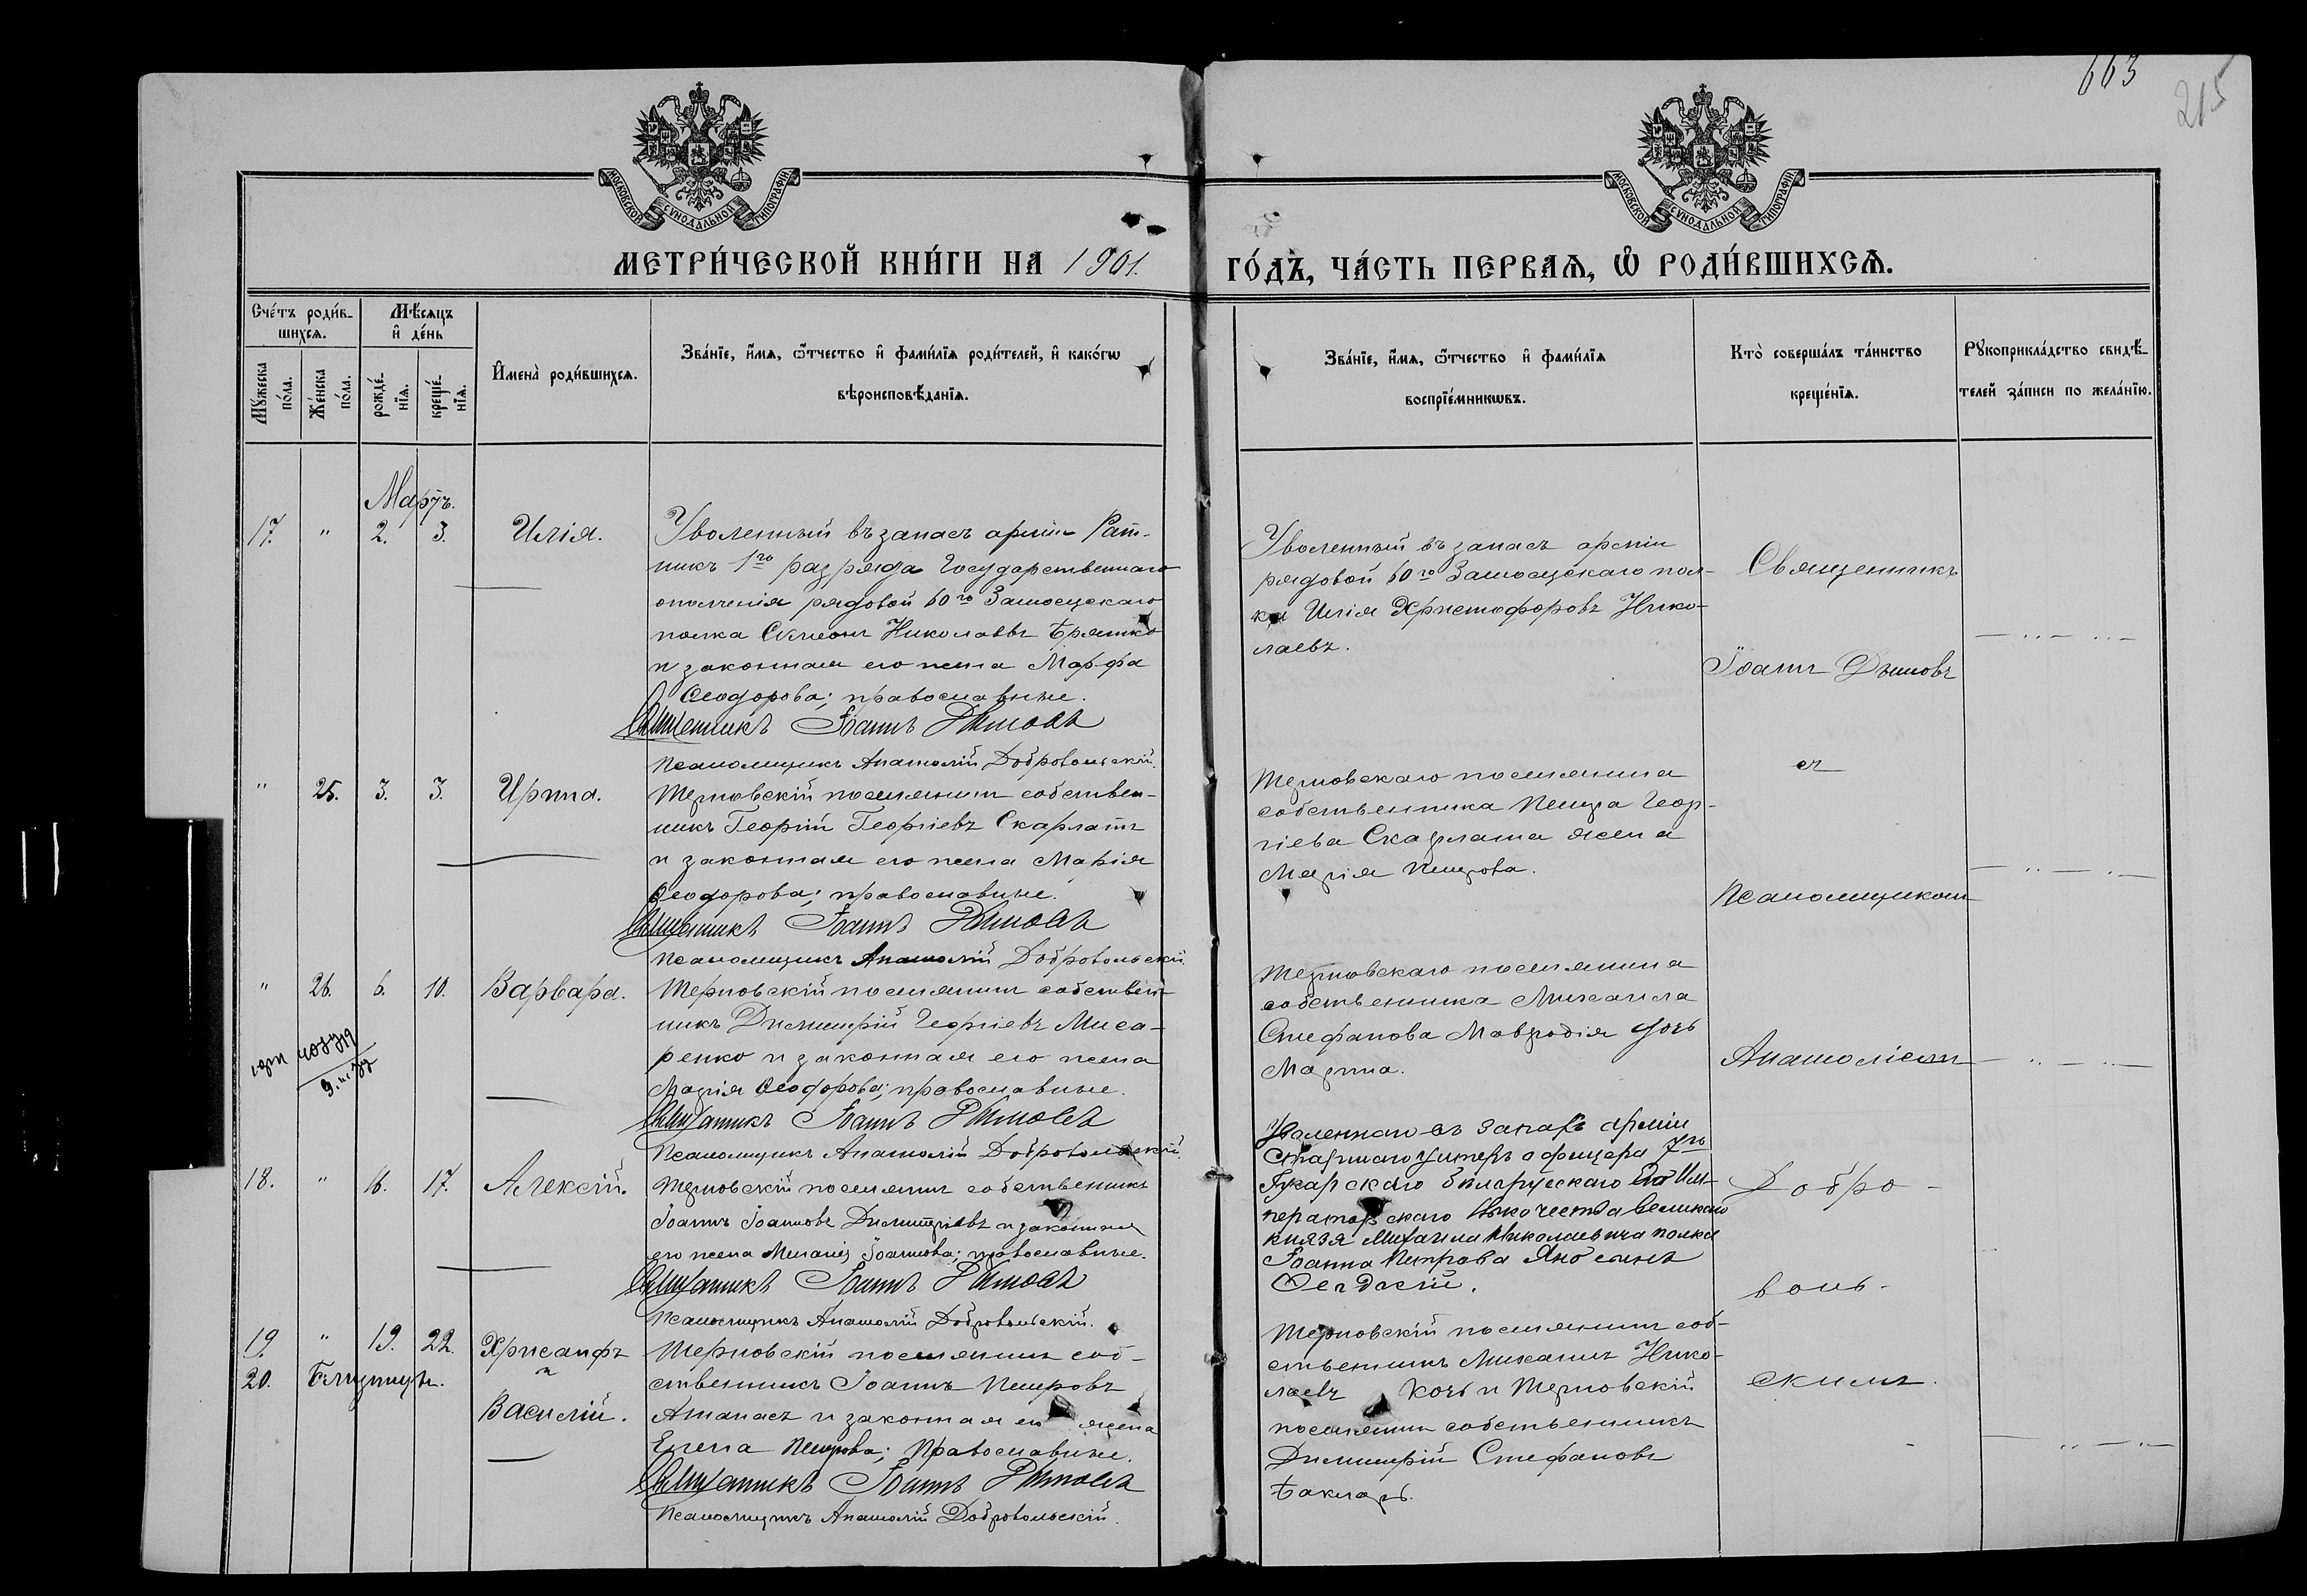 663
215
МОСКОВСКОЙ СѴНОДАЛЬНОЙ ТИПОГРАФІИ
МОСКОВСКОЙ СѴНОДАЛЬНОЙ ТИПОГРАФІИ
МЕТРИ́ЧЕСКОЙ КНИ́ГИ НА 1901.
ГО́ДЪ, ЧА́СТЬ ПЕРВАѦ, Ѽ РОДИ́ВШИХСѦ.
Сче́тъ роди́в-
шихсѧ.
Мꙋ́жеска
по́ла.
Же́нска
по́ла.
Мѣ́сѧцъ
и҆ де́нь
рожде́-
нїѧ.
креще́-
нїѧ.
И҆мена̀ роди́вшихсѧ.
Зва́нїе, и҆́мѧ, ѻ҆́тчество и҆ фами́лїѧ роди́телей, и҆ како́гѡ
вѣроисповѣ́данїѧ.
Зва́нїе, и҆́мѧ, ѻ҆́тчество и҆ фами́лїѧ
воспрїе́мникѡвъ.
Кто̀ соверша́лъ та́инство
креще́нїѧ.
Рꙋкоприкла́дство свидѣ́-
телей за́писи по жела́нїю.
Мартъ.
17. " 2. 3. Илія.
Уволенный въ запасъ арміи Рат-
никъ 1го разряда Государственнаго
ополченія рядовой 60го Замосцскаго
полка Симеонъ Николаевъ Брятко
и законная его жена Марфа
Ѳеодорова; православные.
Священникъ Іоаннъ Дымовъ
Псаломщикъ Анатолій Добровольскій.
Уволенный въ запасъ арміи
рядовой 60го Замосцскаго пол-
ка Илія Христофоровъ Нико-
лаевъ.
Священникъ
Іоаннъ Дымовъ
" 25. 3. 3. Ирина.
Терновскій поселянинъ собствен-
никъ Георгій Георгіевъ Скарлатъ
и законная его жена Марія
Ѳеодорова; православные.
Священникъ Іоаннъ Дымовъ
Псаломщикъ Анатолій Добровольскій.
Терновскаго поселянина
собственника Петра Геор-
гіева Скарлата жена
Марія Петрова.
съ
Псаломщикомъ
" 26. 6. 10. Варвара.
Терновскій поселянинъ собствен-
никъ Димитрій Георгіевъ Миса-
ренко и законная его жена
Марія Ѳеодорова; православные.
Священникъ Іоаннъ Дымовъ
Псаломщикъ Анатолій Добровольскій.
Терновскаго поселянина
собственника Михаила
Стефанова Мавродія дочь
Марина.
Анатоліемъ
18. " 16. 17. Алексій.
Терновскій поселянинъ собственникъ
Іоаннъ Іоанновъ Димитріевъ и законная
его жена Меланія Іоаннова; православные.
Священникъ Іоаннъ Дымовъ
Псаломщикъ Анатолій Добровольскій.
Уволеннаго въ запасъ арміи
Старшаго унтеръ офицера 7го
Его Им-
ператорскаго Высочества Великаго
князя Михаила Николаевича полка
Іоанна Петрова сынъ
Добро-
воль-
19. " 19. 22. Хрисанфъ
20. Близнецы. и
Василій.
Терновскій поселянинъ соб-
ственникъ Іоаннъ Петровъ
Атанасъ и законная его жена
Елена Петрова; Православные.
Священникъ Іоаннъ Дымовъ
Псаломщикъ Анатолій Добровольскій.
Терновскій поселянинъ соб-
ственникъ Михаилъ Нико-
лаевъ Кочь и Терновскій
поселянинъ собственникъ
Димитрій Стефановъ
Бакларь.
скимъ.